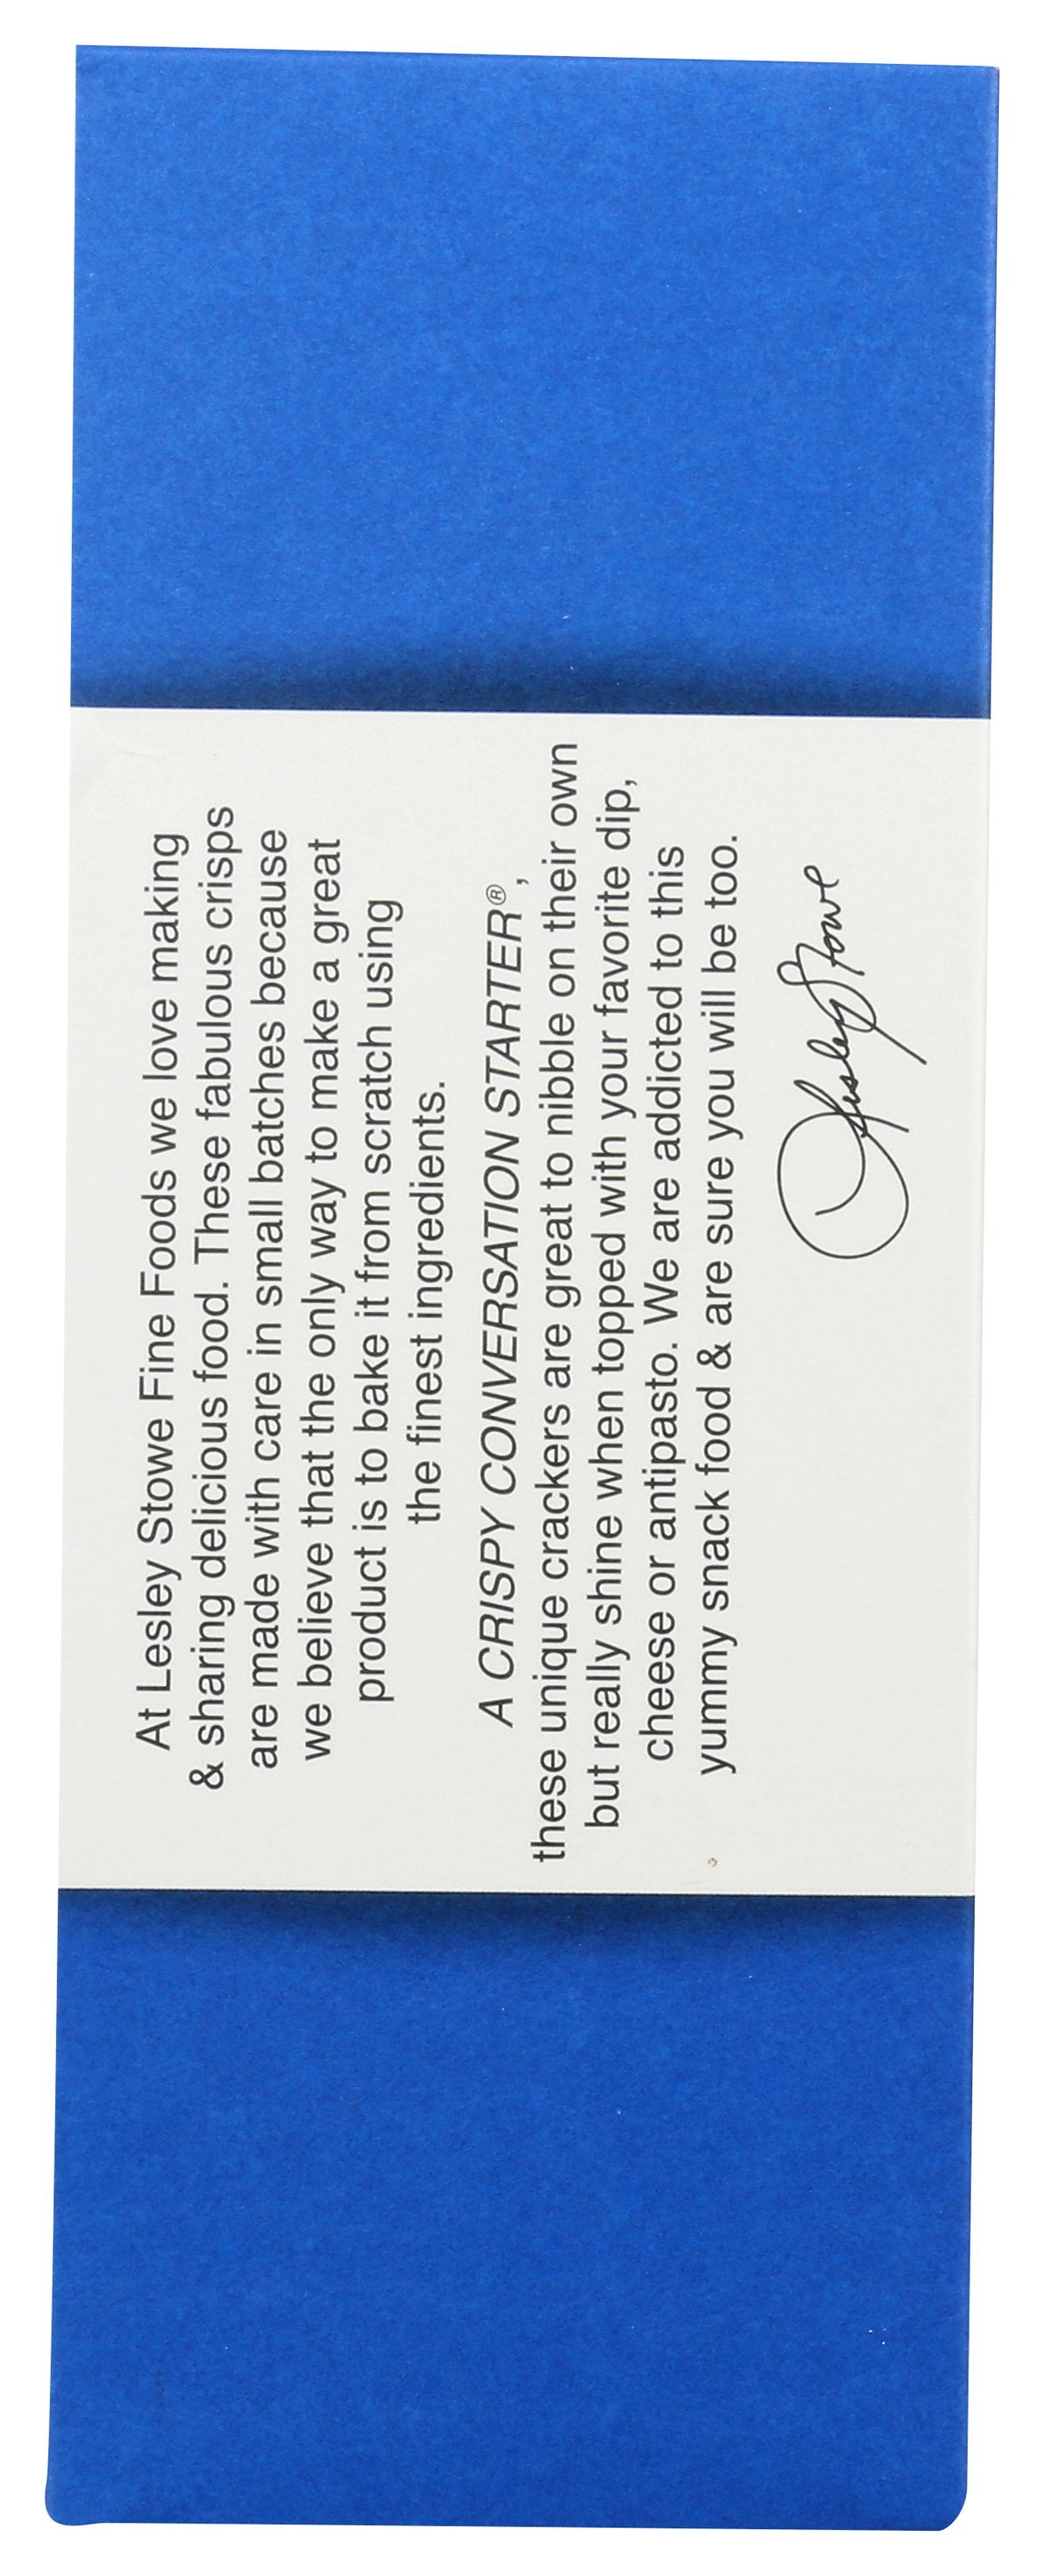 At Lesley Stowe Fine Foods we love making
& sharing delicious food. These fabulous crisps
are made with care in small batches because
we believe that the only way to make a great
product is to bake it from scratch using
the finest ingredients.
A CRISPY CONVERSATION STARTER®,
these unique crackers are great to nibble on their own
but really shine when topped with your favorite dip,
cheese or antipasto. We are addicted to this
yummy snack food & are sure you will be too.
Lesley Stowe